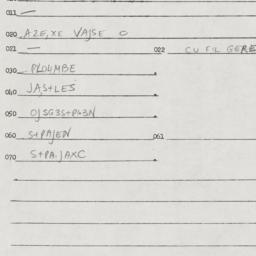 011 —
020 AZE,XE VAJSE O
021 — 022 CU FIL GERE
030 PLOUMBE
040 JA,S+LES
050
060 S+PAJEN 061
070 S+PA.JAXC